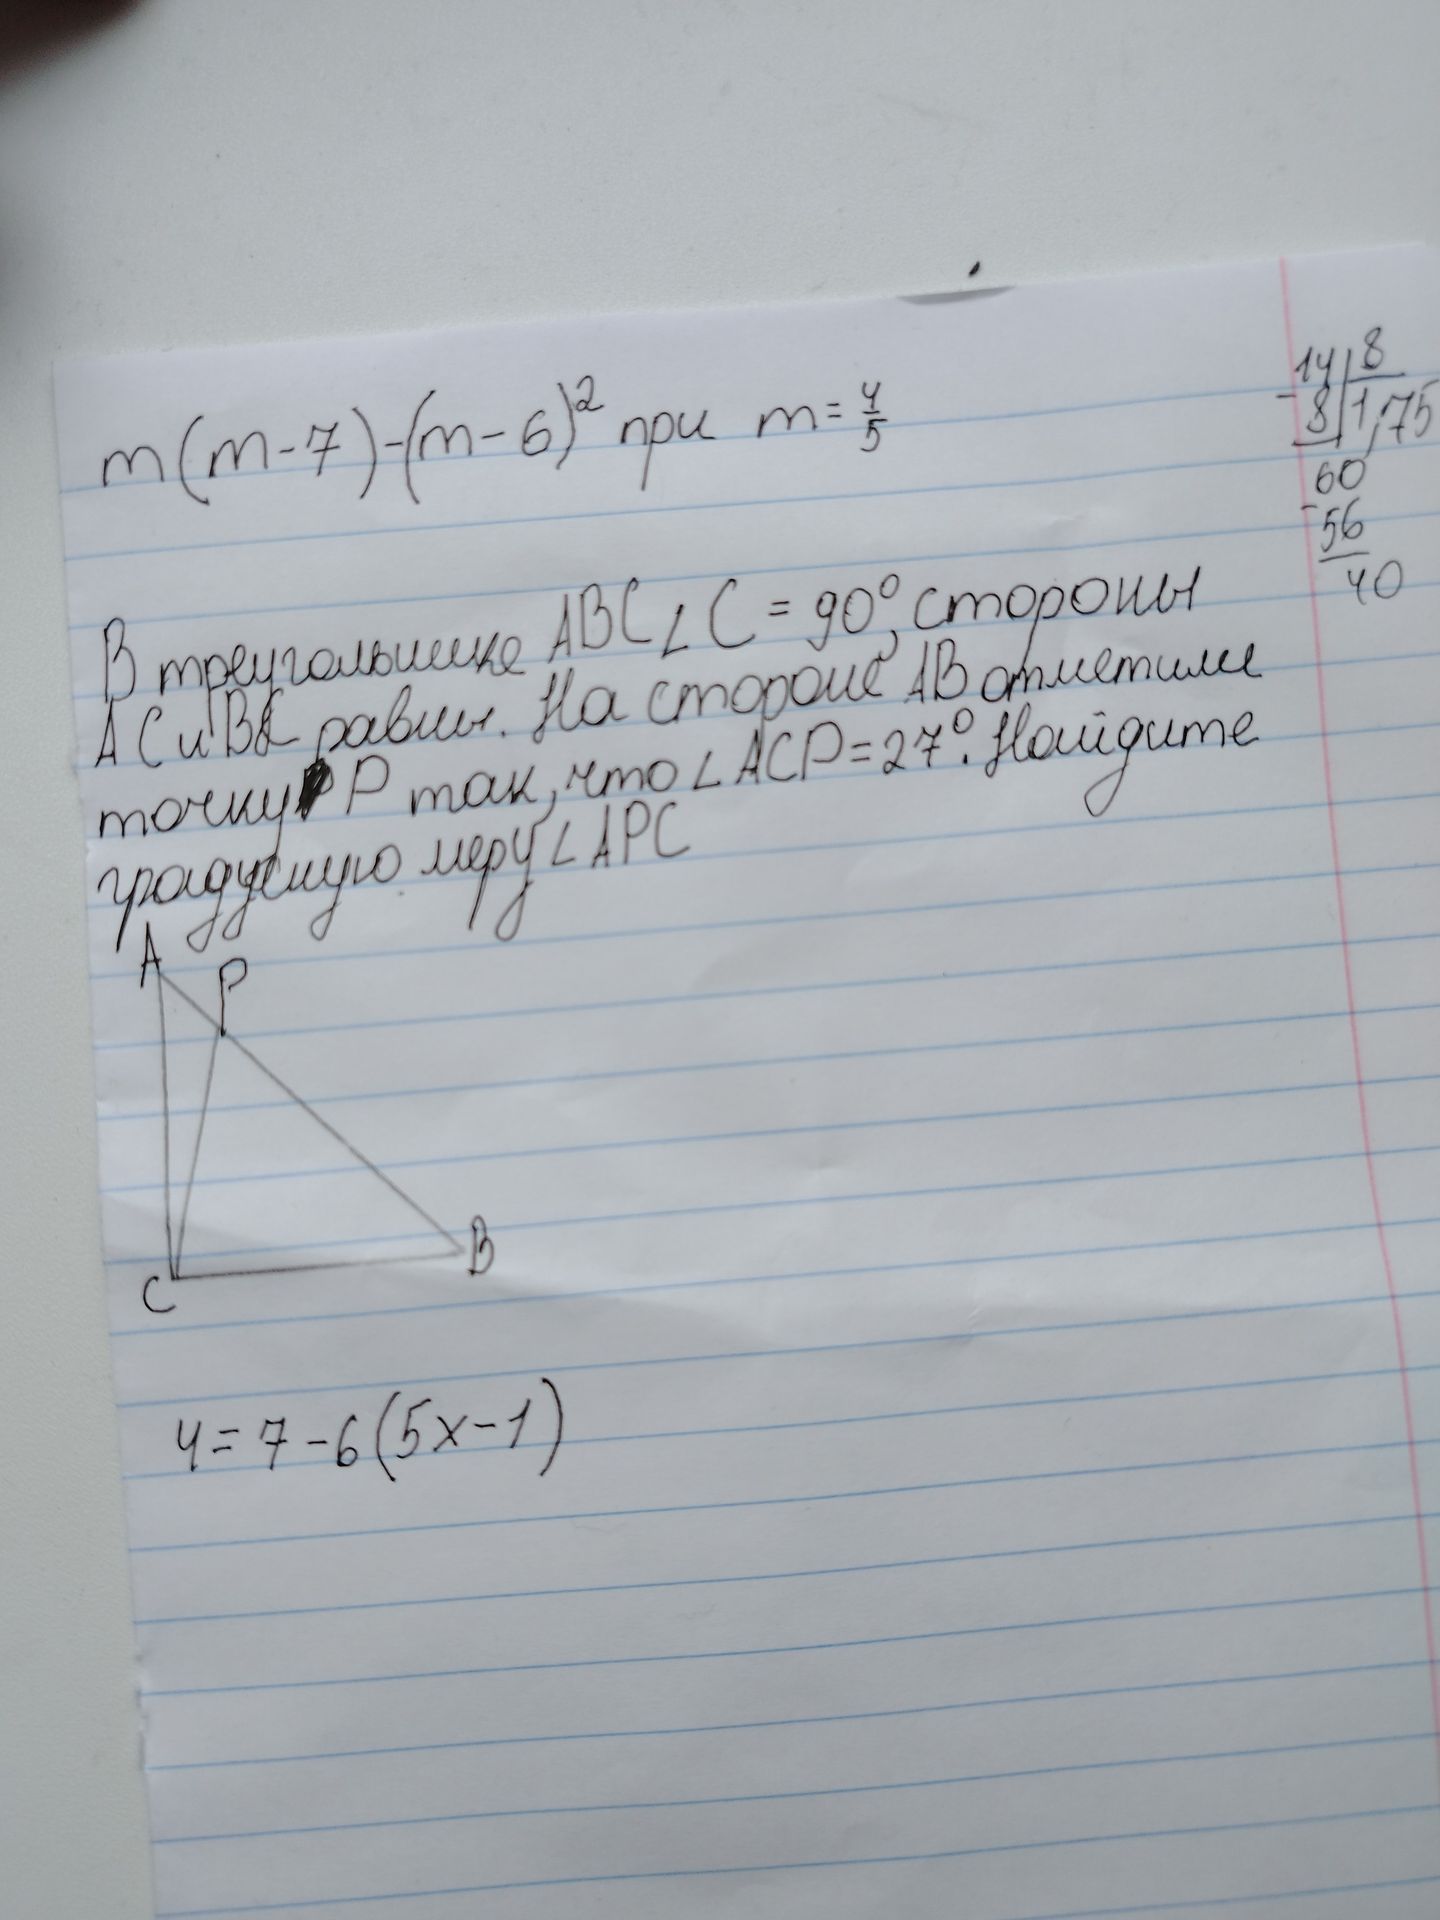 m(m-7)-(m-6)² при m=4/5
14 8
- 8 1,75
60
- 56
40
В треугольнике ABC ∠C=90°, стороны
AC и BC равны. На стороне AB отметили
точку P так, что ∠ACP=27°. Найдите
градусную меру ∠APC
A
P
B
C
4=7-6(5x-1)